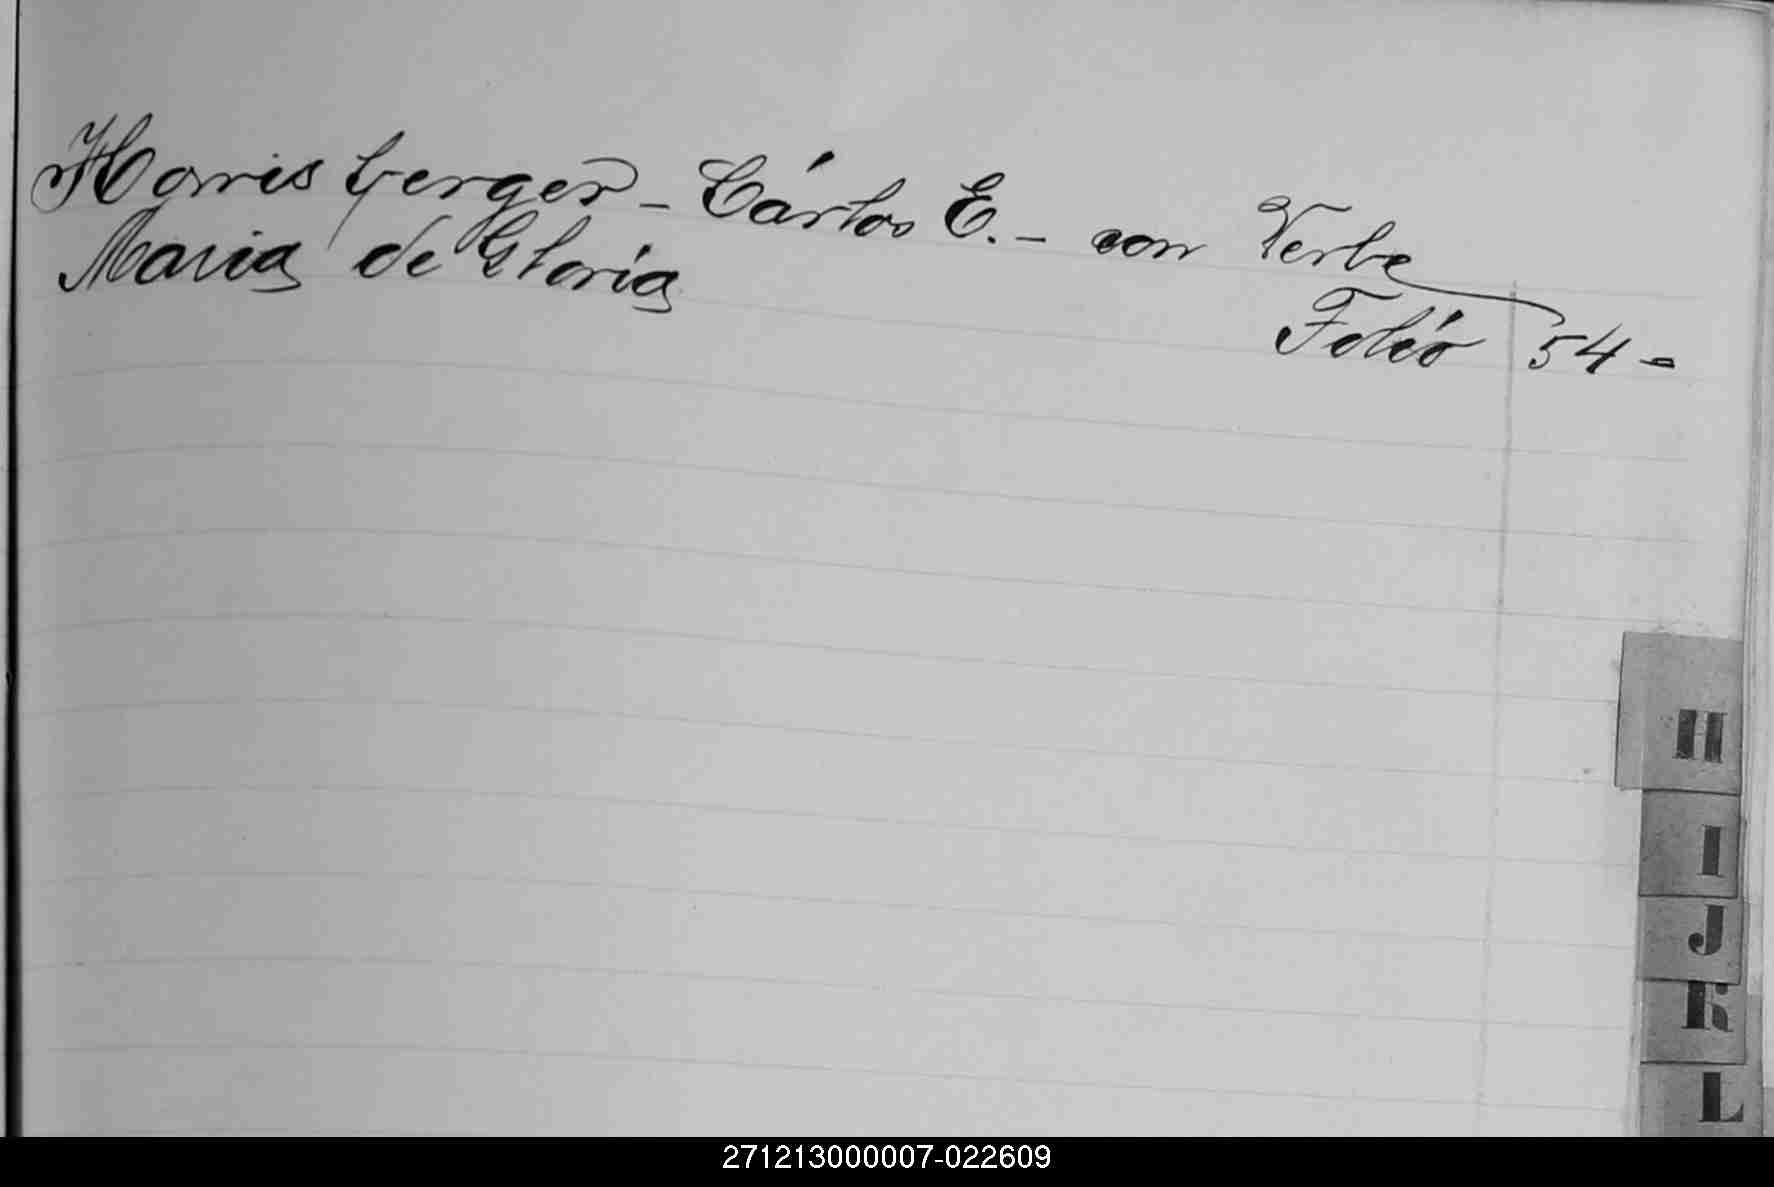 Horris berger - Cárlos E. - con Yerbe
Maria de Gloria
Folio 54 -
H
I
J
K
L
271213000007-022609